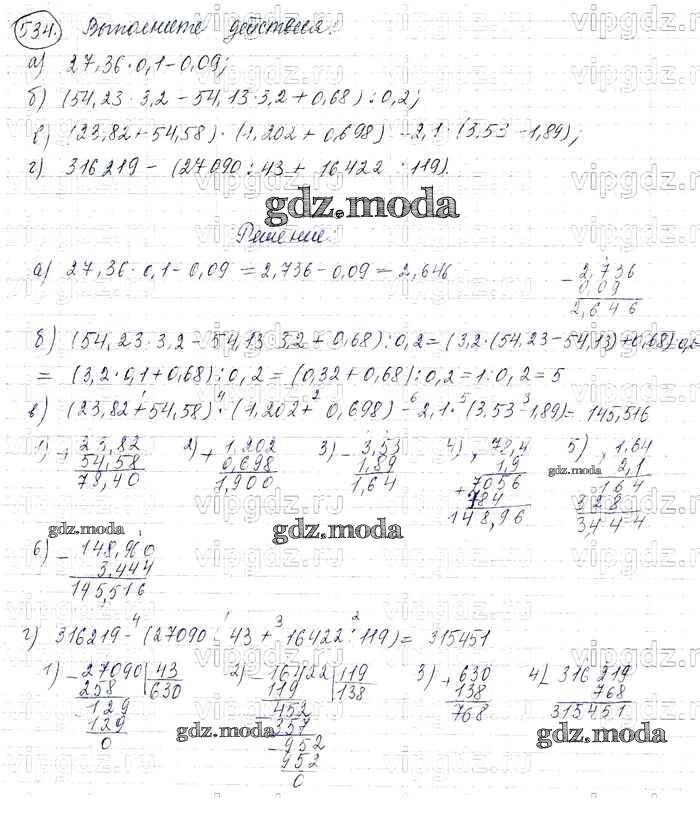 534. Выполните действия:
а) 27,36·0,1-0,09;
б) (54,23·3,2-54,13·3,2+0,68):0,2;
в) (23,82+54,58)·(1,202+0,698)-2,1·(3,53-1,89);
г) 316219-(27090:43+16422:119).
gdz.moda
Решение.
а) 27,36·0,1-0,09=2,736-0,09=2,646
- 2,736
0,09
2,646
б) (54,23·3,2-54,13·3,2+0,68):0,2=(3,2·(54,23-54,13)+0,68):0,2=
= (3,2·0,1+0,68):0,2=(0,32+0,68):0,2=1:0,2=5
в) (23,82+54,58)·(1,202+0,698)-2,1·(3,53-1,89)=145,516
1) + 23,82
54,58
78,40
2) + 1,202
0,698
1,900
3) - 3,53
1,89
1,64
4) × 78,4
1,9
+ 7056
784
148,96
5) × 1,64
2,1
164
328
3,444
gdz.moda
gdz.moda
gdz.moda
6) - 148,960
3,444
145,516
г) 316219-(27090:43+16422:119)=315451
1) - 27090 | 43
258 630
- 129
129
0
2) - 16422 | 119
119 138
- 452
357
- 952
952
0
3) + 630
138
768
4) - 316219
768
315451
gdz.moda
gdz.moda
vipgdz.ru